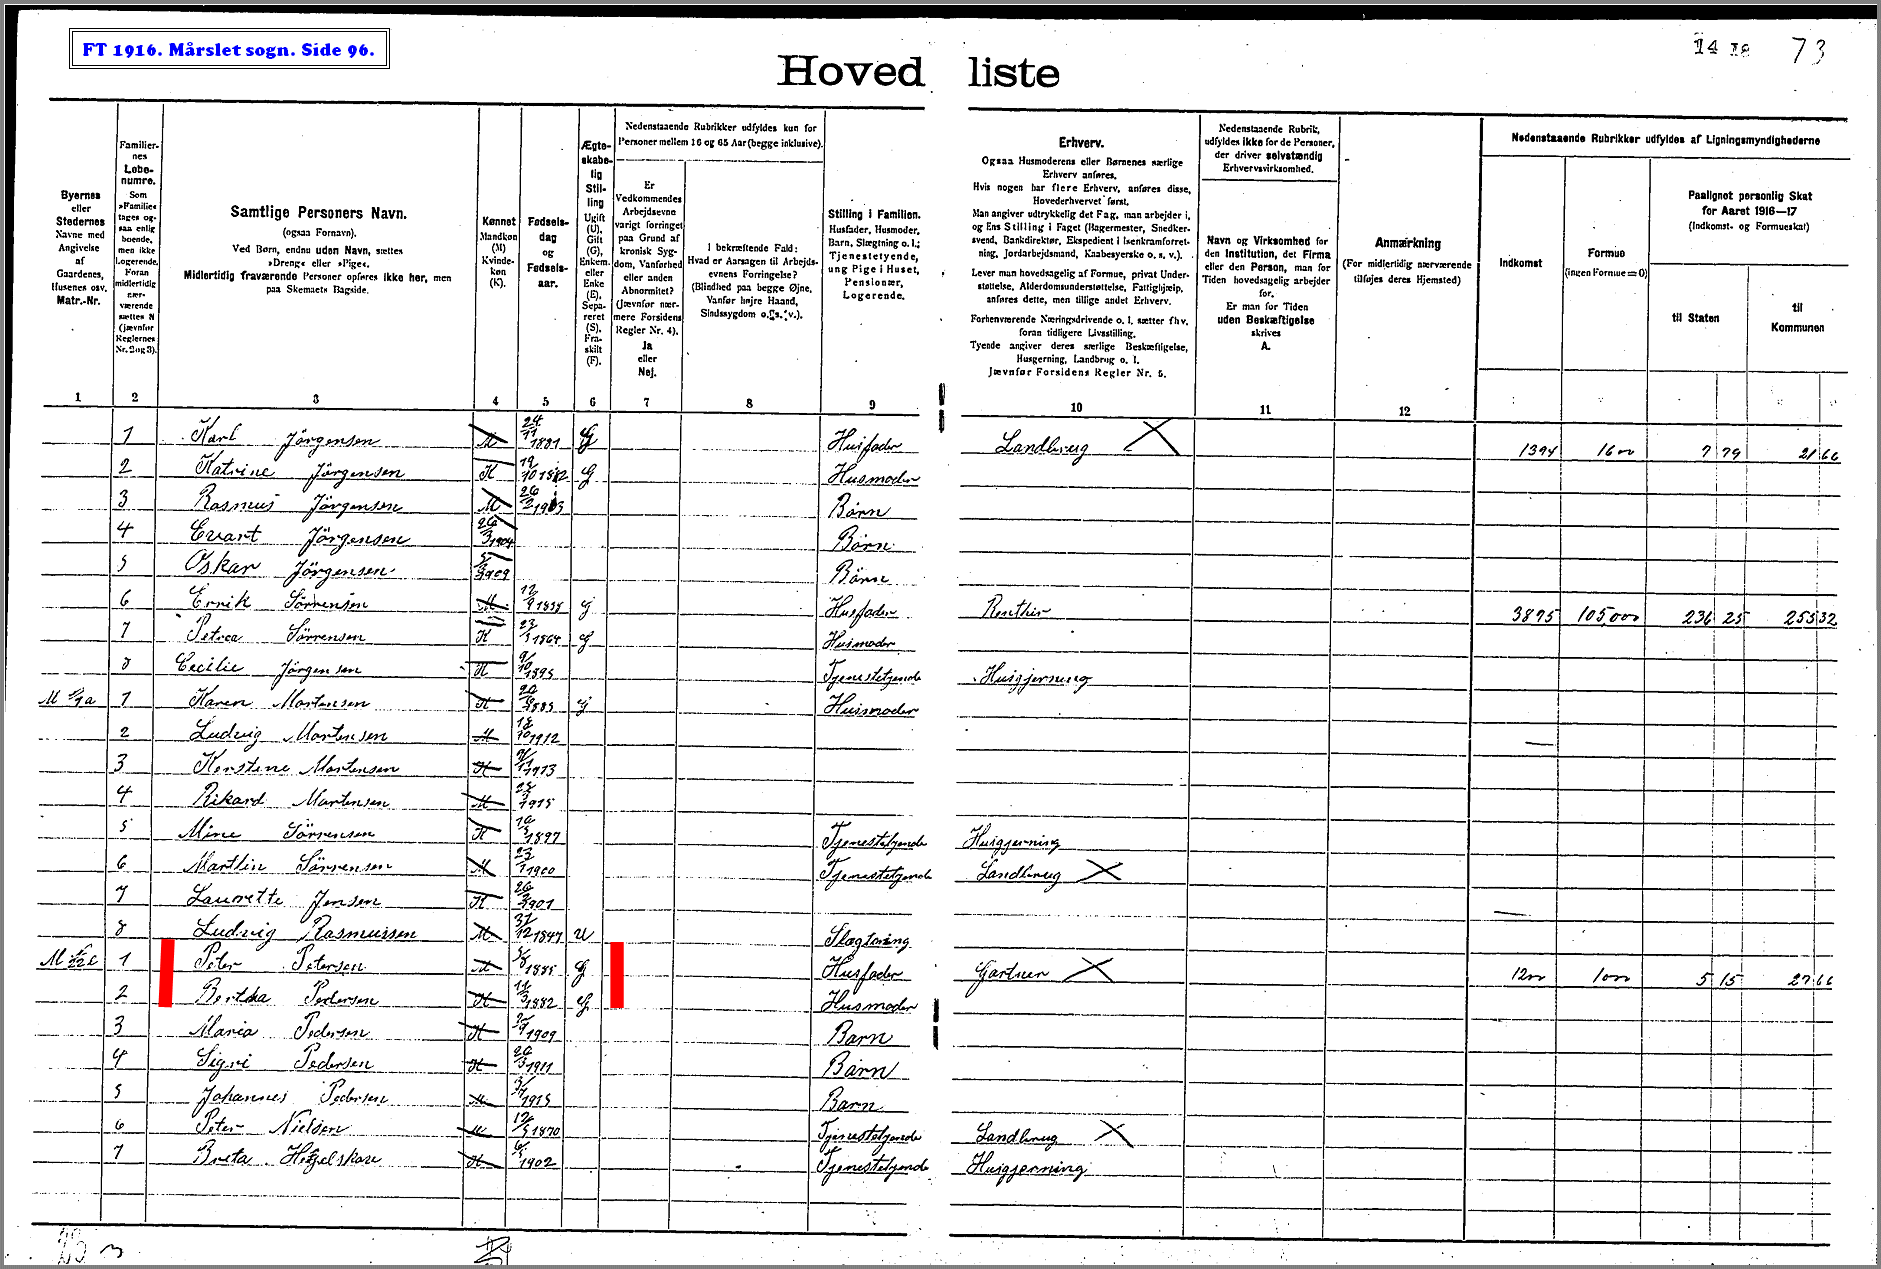 FT 1916. Mårslet sogn. Side 96.
14 18 73
Hoved liste
Byernes
eller
Stedernes
Navne med
Angivelse
af
Gaardenes,
Husenes osv.
Matr.-Nr.
Familier-
nes
Løbe-
numre.
Som
»Familie«
tages og-
saa enlig
boende,
men ikke
Logerende.
Foran
midlertidig
nær-
værende
sættes N
(jævnfør
Reglernes
Nr. 2 og 3).
Samtlige Personers Navn.
(ogsaa Fornavn).
Ved Børn, endnu uden Navn, sættes
»Dreng« eller »Pige«.
Midlertidig fraværende Personer opføres ikke her, men
paa Skemaets Bagside.
Kønnet
Mandkøn
(M)
Kvinde-
køn
(K).
Fødsels-
dag
og
Fødsels-
aar.
Ægte-
skabe-
lig
Stil-
ling
Ugift
(U),
Gift
(G),
Enkem.
eller
Enke
(E),
Sepa-
reret
(S),
Fra-
skilt
(F).
Nedenstaaende Rubrikker udfyldes kun for
Personer mellem 16 og 65 Aar (begge inklusive).
Er
Vedkommendes
Arbejdsevne
varigt forringet
paa Grund af
kronisk Syg-
dom, Vanførhed
eller anden
Abnormitet?
(Jævnfør nær-
mere Forsidens
Regler Nr. 4).
Ja
eller
Nej.
I bekræftende Fald:
Hvad er Aarsagen til Arbejds-
evnens Forringelse?
(Blindhed paa begge Øjne,
Vanfør højre Haand,
Sindssygdom o. s. v.).
Stilling i Familien.
Husfader, Husmoder,
Barn, Slægtning o. l.;
Tjenestetyende,
ung Pige i Huset,
Pensionær,
Logerende.
Erhverv.
Ogsaa Husmoderens eller Børnenes særlige
Erhverv anføres.
Hvis nogen har flere Erhverv, anføres disse,
Hovederhvervet først.
Man angiver udtrykkelig det Fag, man arbejder i,
og Ens Stilling i Faget (Bagermester, Snedker-
svend, Bankdirektør, Ekspedient i Isenkramforret-
ning, Jordarbejdsmand, Kaabesyerske o. s. v.).
Lever man hovedsagelig af Formue, privat Under-
støttelse, Alderdomsunderstøttelse, Fattighjælp,
anføres dette, men tillige andet Erhverv.
Forhenværende Næringsdrivende o. l. sætter fhv.
foran tidligere Livsstilling.
Tyende angiver deres særlige Beskæftigelse,
Husgerning, Landbrug o. l.
Jævnfør Forsidens Regler Nr. 5.
Nedenstaaende Rubrik,
udfyldes ikke for de Personer,
der driver selvstændig
Erhvervsvirksomhed.
Navn og Virksomhed for
den Institution, det Firma
eller den Person, man for
Tiden hovedsagelig arbejder
for.
Er man for Tiden
uden Beskæftigelse
skrives
A.
Anmærkning
(For midlertidig nærværende
tilføjes deres Hjemsted)
Nedenstaaende Rubrikker udfyldes af Ligningsmyndighederne
Indkomst
Formue
(ingen Formue = 0)
Paalignet personlig Skat
for Aaret 1916—17
(Indkomst- og Formueskat)
til Staten
til
Kommunen
1 2 3 4 5 6 7 8 9 10 11 12
1 Karl Jörgensen M 24/11 1881 G Husfader Landbrug 1394 1600 7 79 21 66
2 Katrine Jörgensen K 19/10 1882 G Husmoder
3 Rasmus Jörgensen M 26/2 1903 Börn
4 Evart Jörgensen 26/3 1904 Börn
5 Oskar Jörgensen 1909 Börn
6 Errik Sörrensen M 12/9 1838 G Husfader Renthir 3895 105,000 236 25 255 32
7 Petrea Sörrensen K 23 1864 G Husmoder
8 Cecilie Jörgensen K 9/10 1895 Tjenestetyende Husgjerning
M 1a 1 Karen Mortensen K 1883 G Husmoder
2 Ludvig Mortensen M 18/10 1912
3 Kerstene Mortensen K 1913
4 Rikard Mortensen M 1915
5 Mine Sörrensen K 1897 Tjenestetyende Husgjerning
6 Marthin Sörrensen M 23/1 1900 Tjenestetyende Landbrug
7 Laurette Jensen K 1901
8 Ludvig Rasmussen M 31/12 1847 U Slægtning
M 1 Peter Petersen M 1885 G Husfader Gartner 1200 1000 5 15 27 66
2 Bertha Pedersen K 11/3 1882 G Husmoder
3 Maria Pedersen K 1909 Barn
4 Sigri Pedersen K 1911 Barn
5 Johannes Pedersen M 1915 Barn
6 Peter Nielsen M 1870 Tjenestetyende Landbrug
7 Breta K 1902 Tjenestetyende Husgjerning